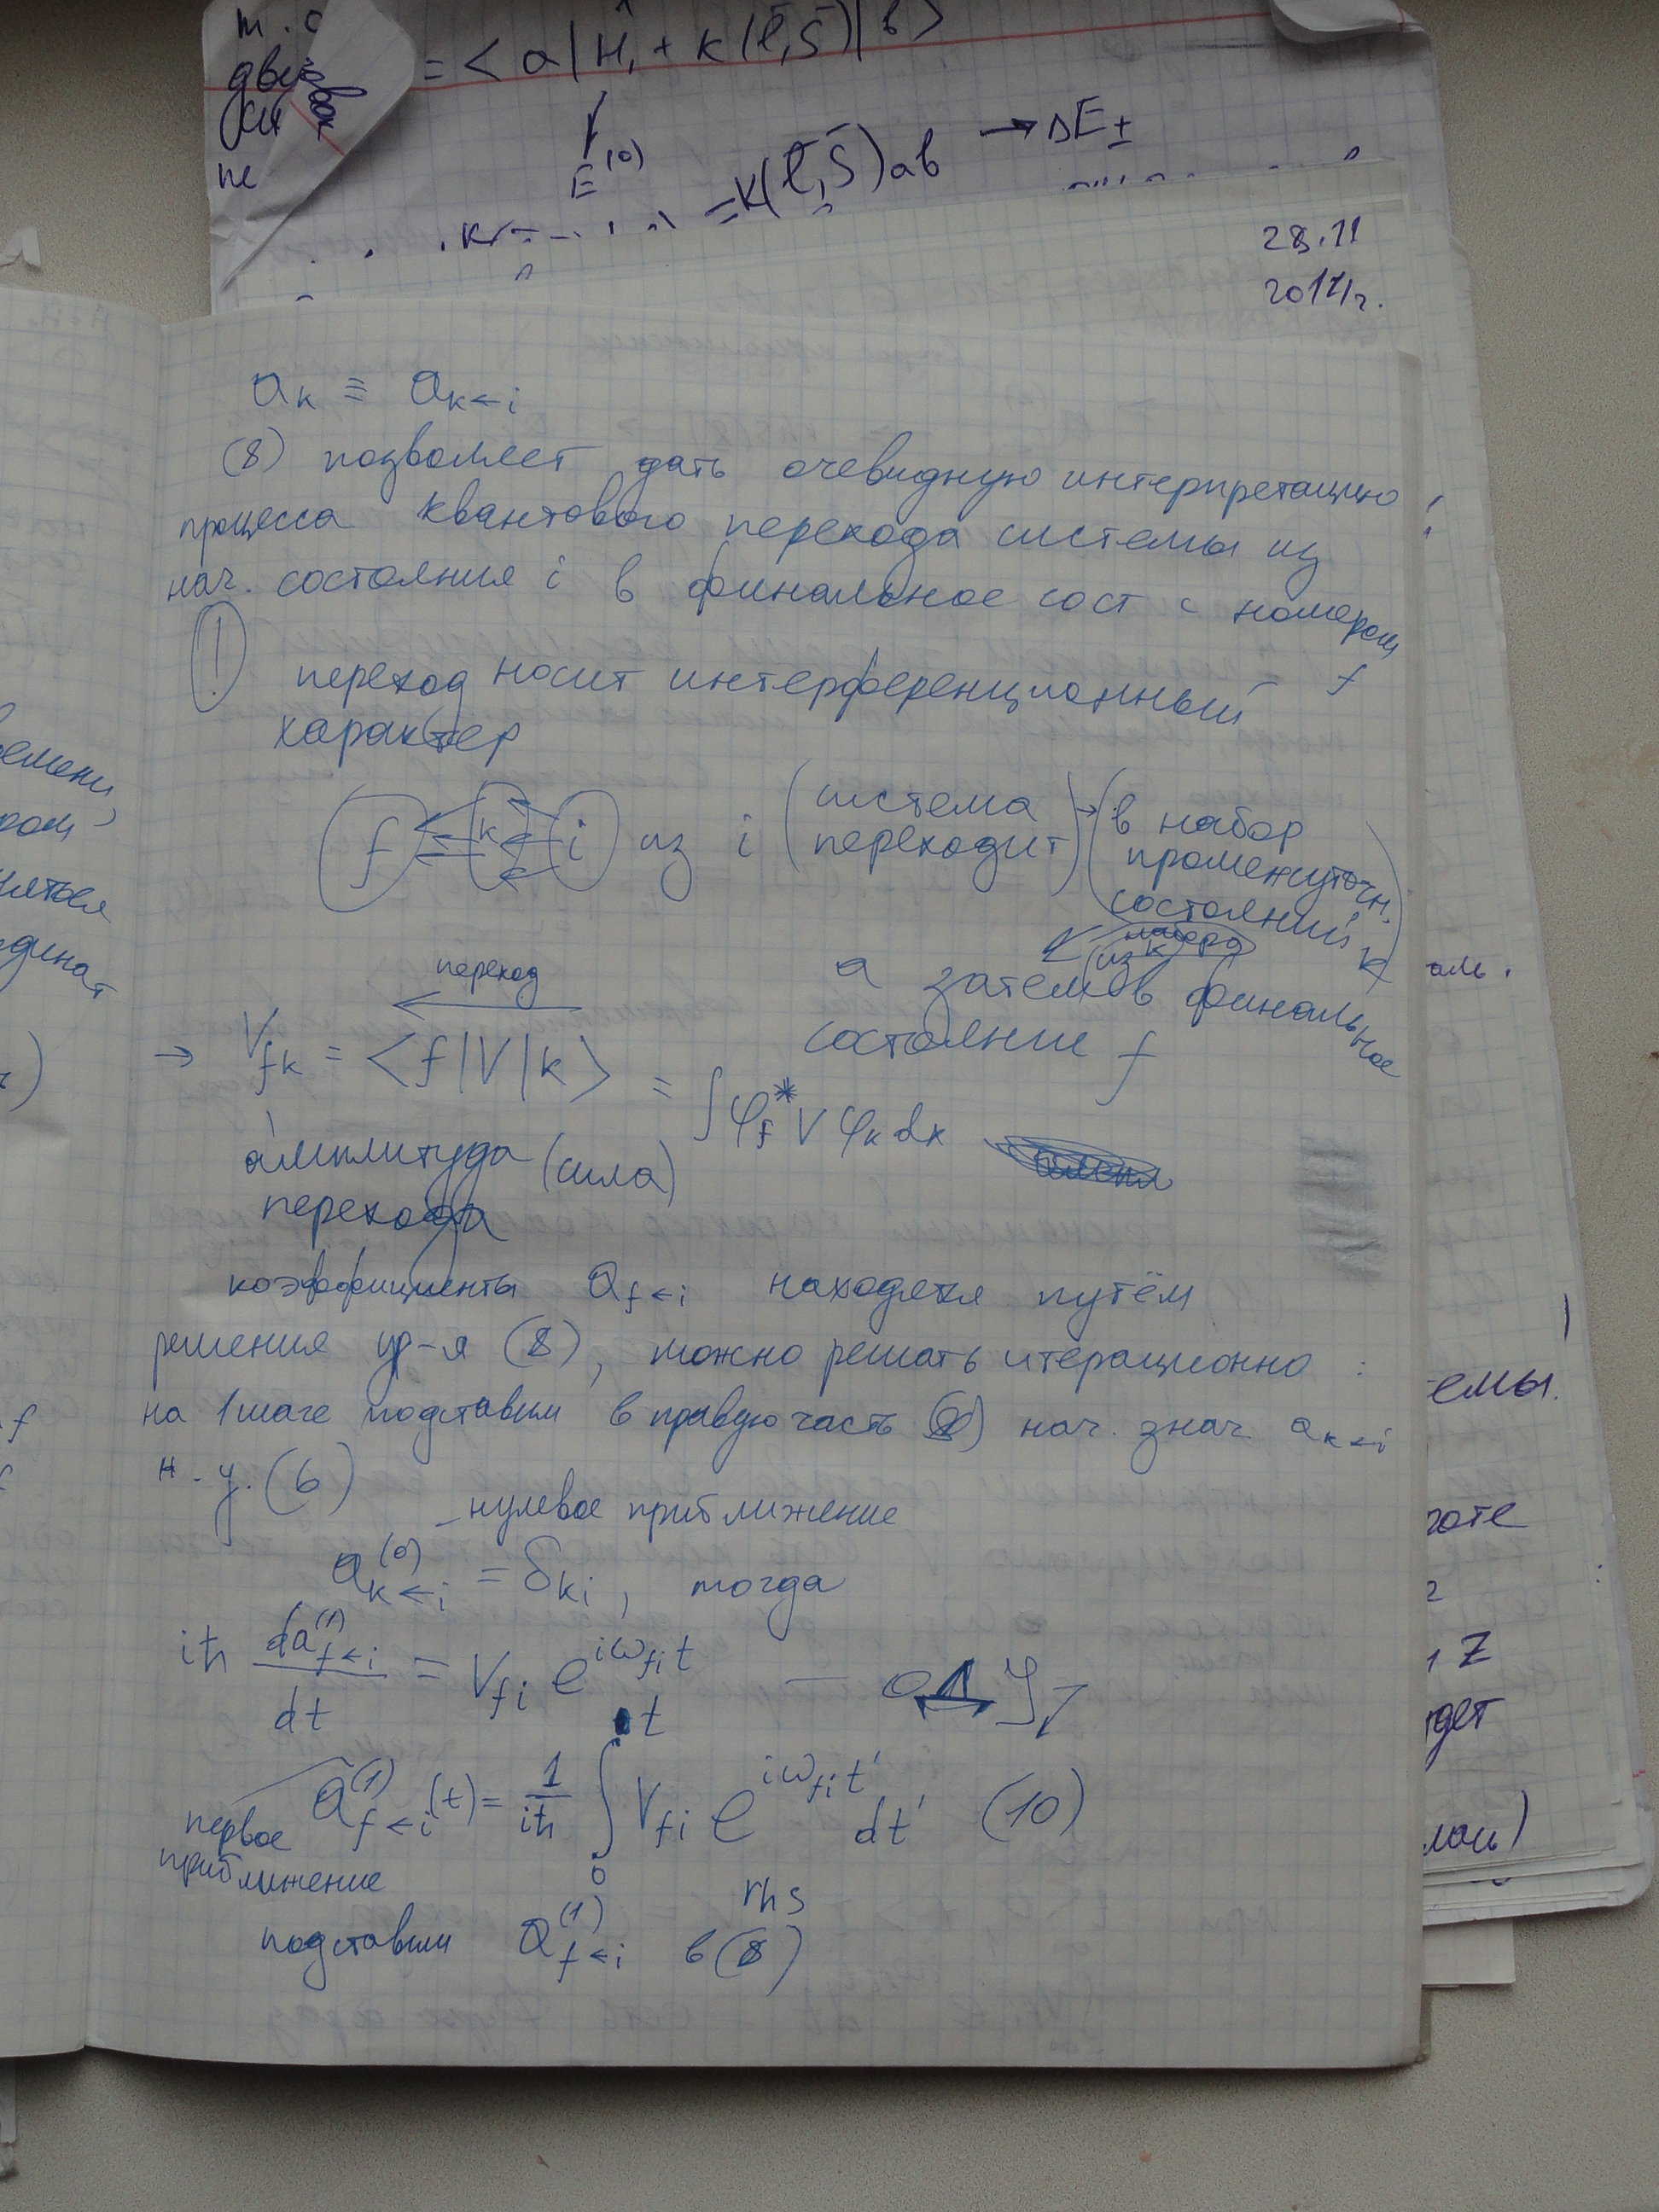 = < a | Ĥ₁ + K(l̄,S̄) | b >
E⁽⁰⁾
= K(l̄,S̄)ab → ΔE±
28.11
2017г.
aₖ ≡ aₖ←ᵢ
(8) позволяет дать очевидную интерпретацию
процесса квантового перехода системы из
нач. состояния i в финальное сост с номером
f
! переход носит интерференционный
характер
f k i из i (система переходит) → (в набор
промежуточн.
состояний k)
а затем (из набора k) в финальное
состояние f
переход
→ V_fk = <f|V|k> = ∫φ_f* V φ_k dx
амплитуда (сила)
перехода
коэффициенты a_f←i находятся путём
решения ур-я (8), можно решать итерационно :
на 1 шаге подставим в правую часть (8) нач. знач a_k←i
н.у. (6)
нулевое приближение
a⁽⁰⁾_k←i = δ_ki , тогда
iħ da⁽¹⁾_f←i / dt = V_fi e^{iω_fi t} — ОДУ
a⁽¹⁾_f←i (t) = 1/iħ ∫₀ᵗ V_fi e^{iω_fi t'} dt' (10)
первое
приближение
rhs
подставим a⁽¹⁾_f←i в (8)